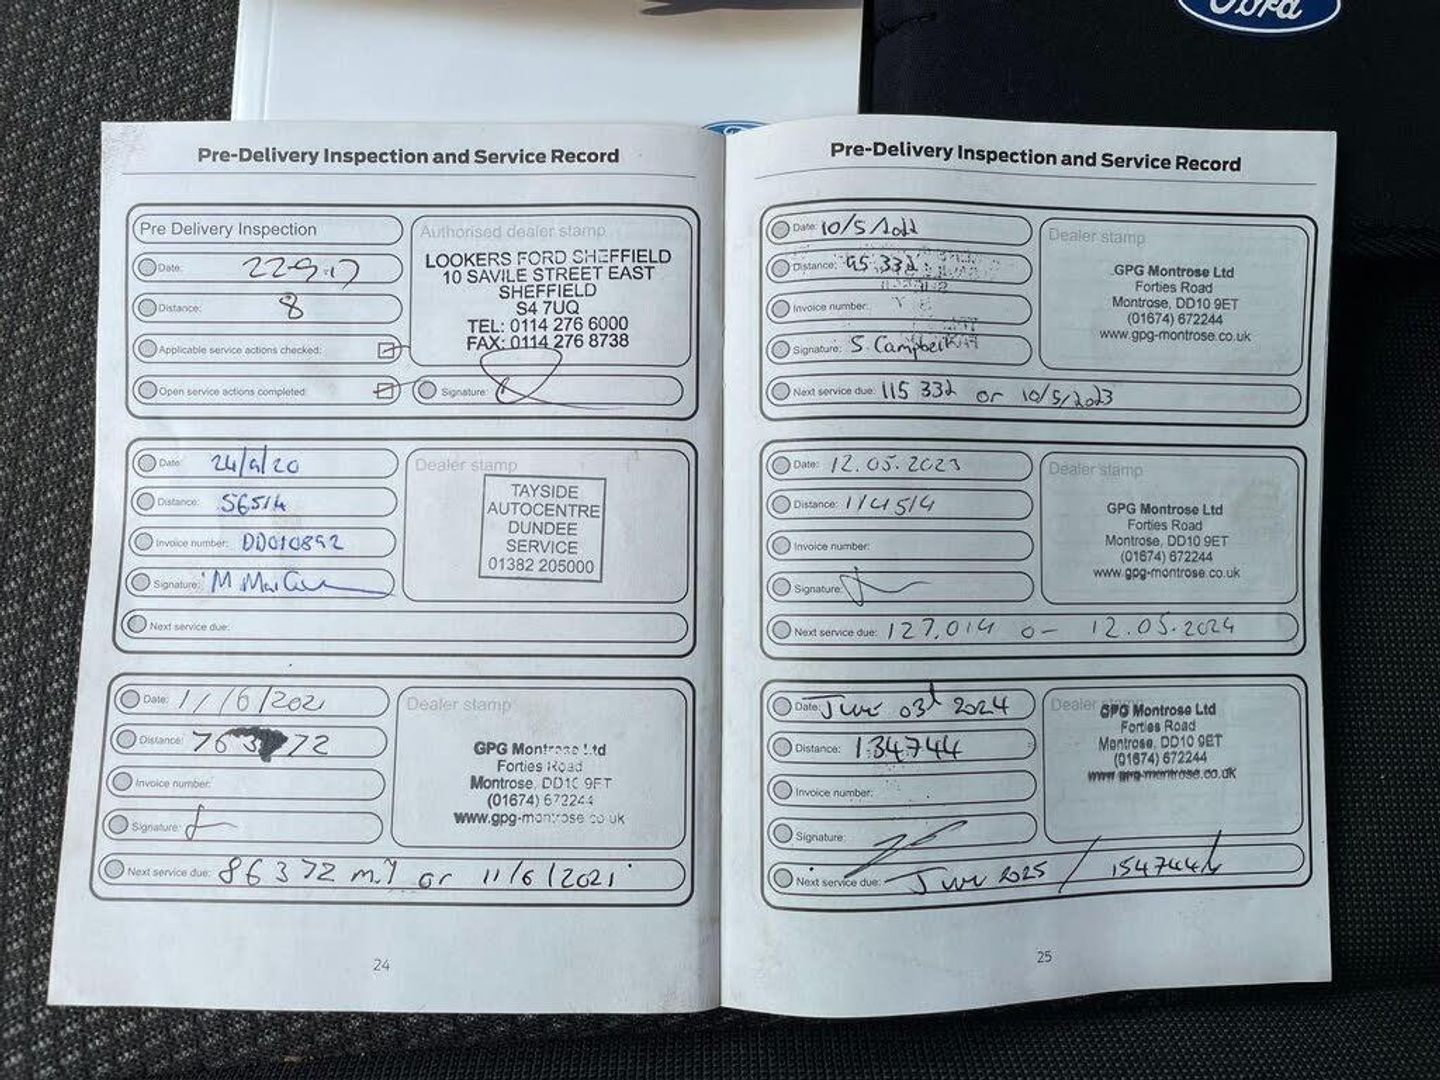 Ford
Pre-Delivery Inspection and Service Record
Pre Delivery Inspection
Date: 22.9.17
Distance: 8
Applicable service actions checked:
Open service actions completed:
Authorised dealer stamp
LOOKERS FORD SHEFFIELD
10 SAVILE STREET EAST
SHEFFIELD
S4 7UQ
TEL: 0114 276 6000
FAX: 0114 276 8738
Signature:
Date: 24/9/20
Distance: 56514
Invoice number: DD010892
Signature: M
Next service due:
Dealer stamp
TAYSIDE
AUTOCENTRE
DUNDEE
SERVICE
01382 205000
Date: 11/6/2021
Distance: 76372
Invoice number:
Signature:
Dealer stamp
GPG Montrose Ltd
Forties Road
Montrose, DD10 9ET
(01674) 672244
www.gpg-montrose.co.uk
Next service due: 86372 or 11/6/2021
24
Pre-Delivery Inspection and Service Record
Date: 10/5/2022
Distance: 95 332
Invoice number:
Signature: S. Campbell
Dealer stamp
GPG Montrose Ltd
Forties Road
Montrose, DD10 9ET
(01674) 672244
www.gpg-montrose.co.uk
Next service due: 115 332 or 10/5/2023
Date: 12.05.2023
Distance: 114514
Invoice number:
Signature:
Dealer stamp
GPG Montrose Ltd
Forties Road
Montrose, DD10 9ET
(01674) 672244
www.gpg-montrose.co.uk
Next service due: 127,014 or 12.05.2024
Date: June 03rd 2024
Distance: 134744
Invoice number:
Signature:
Dealer stamp
GPG Montrose Ltd
Forties Road
Montrose, DD10 9ET
(01674) 672244
www.gpg-montrose.co.uk
Next service due: June 2025 / 154744
25